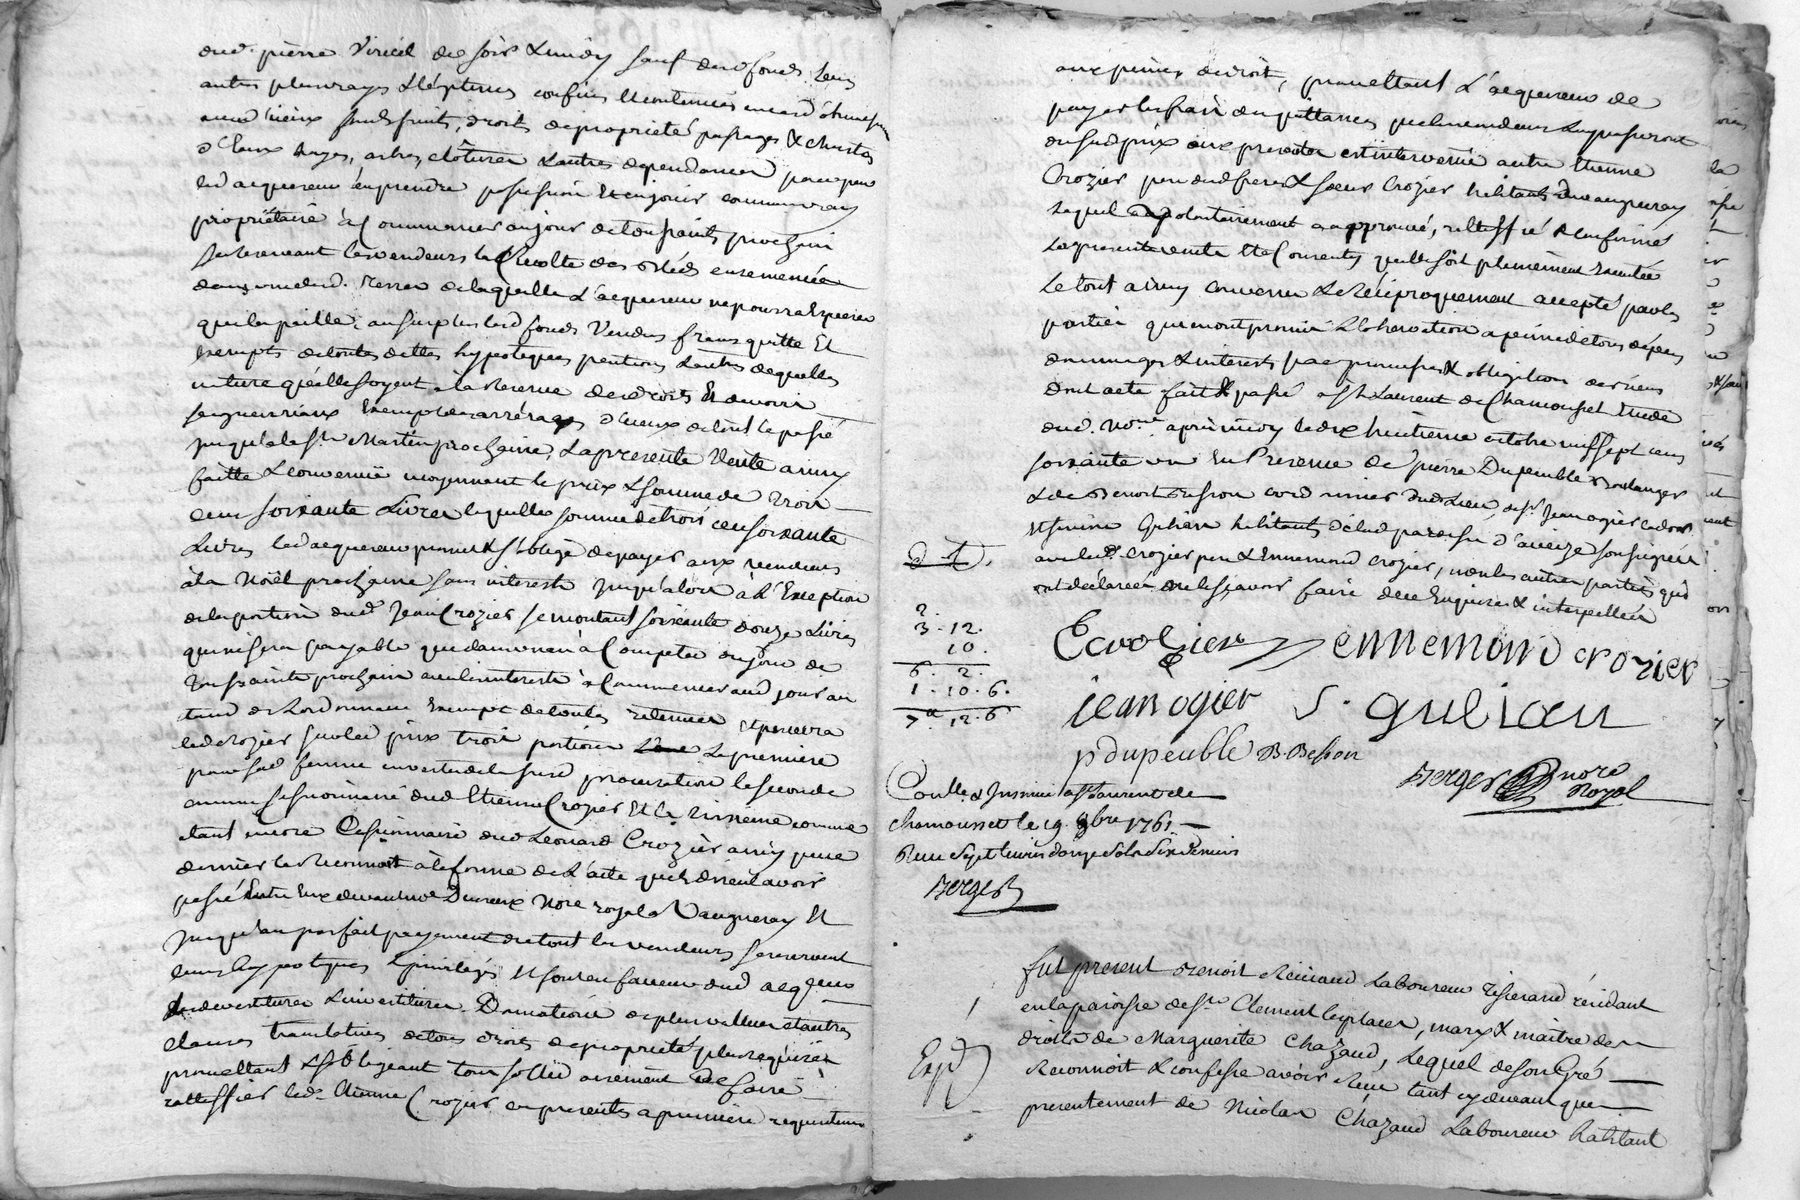 dud. pierre Viricel de soir & midy sauf dud. fonds leurs
autres plus vrays & légitimes confins
fruits, droits de propriété passages & chutes
d'Eaux hayes, arbres clôtures & autres dependances pour par
led acquereur en prendre possession Et en jouir comme vray
propriétaire à Commencer au jour de toussaints prochain
se reservant les vendeurs la Récolte des bleds ensemencés
dans une dud. Terres de laquelle L'acquereur ne pourra Esperer
que la paille, au surplus led fonds Vendus franc quitte Et
exempts de toutes dettes hypoteques pentions & autres de quelles
nature quéelles soyent à la reserve des droits Et devoirs
seigneuriaux Exempt des arrérages d'iceux de tout le passé
jusqu'à la St. Martin prochaine, La presente Vente ainsy
faitte & convenuë moyennant le prix & somme de Trois
cens soixante Livres laquelle somme de trois cens soixante
Livres led acquereur promet & s'oblige de payer aux vendeurs
à la Noël prochaine sans interests jusqu'alors à L'Exception
de la portion dud Jean Crozier se montant soixante douze Livres
qui ne sera payable que dans un an à Compter du jour de
Toussaints prochain avec les interests à Commencer aud jour au
taud de Lordonnance Exempt de toutes retenues Et percevra
led Crozier sur led prix trois portions La premiere
pour sad femme en vertu de la susd procuration la seconde
comme cessionnaire dud Etienne Crozier Et la troisieme comme
étant encore Cessionnaire dud Leonard Crozier ainsy que ce
dernier le Reconnoît à la forme de L'acte quéls disent avoir
passé Entre Eux devant me Nore royal à Vaugneray Et
jusqu'au parfait payement du tout les vendeurs se reservent
leurs hypoteques & privileges Et sont en faveur dud acquereur
devestitures & investitures Donnations de plus vallues et autres
clauses translatives de tous droits de propriété plus requises
promettant & s'obligeant tous sollidairement de faire
rattiffier led. Etienne Crozier ces presentes a premiere requisitions
aux peines de droit, promettant L'acquereur de
payer les frais des quittances que les vendeurs Luy passeront
du susd prix aux presentes est intervenu autre Etienne
Crozier pere dud freres & soeur Crozier habitant de vaugneray
Lequel volontairement a approuvé, rattiffié & confirmé
La presente vente Et Consenty qu'elle soit pleinement Executée
Le tout ainsy convenu & Réciproquement accepté par les
parties qui en ont promis L'observation a peine de tous dépens
dommages & interests par promesses & obligation des biens
dont acte fait & passé à St Laurent de Chamousset Etude
dud. Nore. après midy le dix huitieme octobre mil sept cens
soixante un En Presence de Sr pierre Dupeuble boulanger
& de Benoit Besson cordonnier dud Lieu, de Sr. Jean ogier
et Simon Gulian habitants de lad paroisse d'aveize soussignés
avec led. Crozier pere & Ennemond Crozier, non les autres parties qui
ont déclaré ne le sçavoir faire de ce Enquises & interpellées
2.
3. 12.
10.
6. 2.
1. 10. 6.
7# 12. 6
E crozier ennemond crozier
jean ogier S. gulian
p dupeuble B. Besson
Berger nore Royal
Conllé & Insinué à St Laurent de
chamousset le 19. 8bre 1761
Reçu Sept livres douze sols six deniers
Berger
fut present Benoit Laboureur Tisserand résidant
en la paroisse de St. Clement les places, mary & maître des
droits de Marguerite Chazaud, Lequel de son Gré
Reconnoit & confesse avoir Reçu tant cy devant que
Exp.d
presentement de Nicolas Chazaud Laboureur habitant